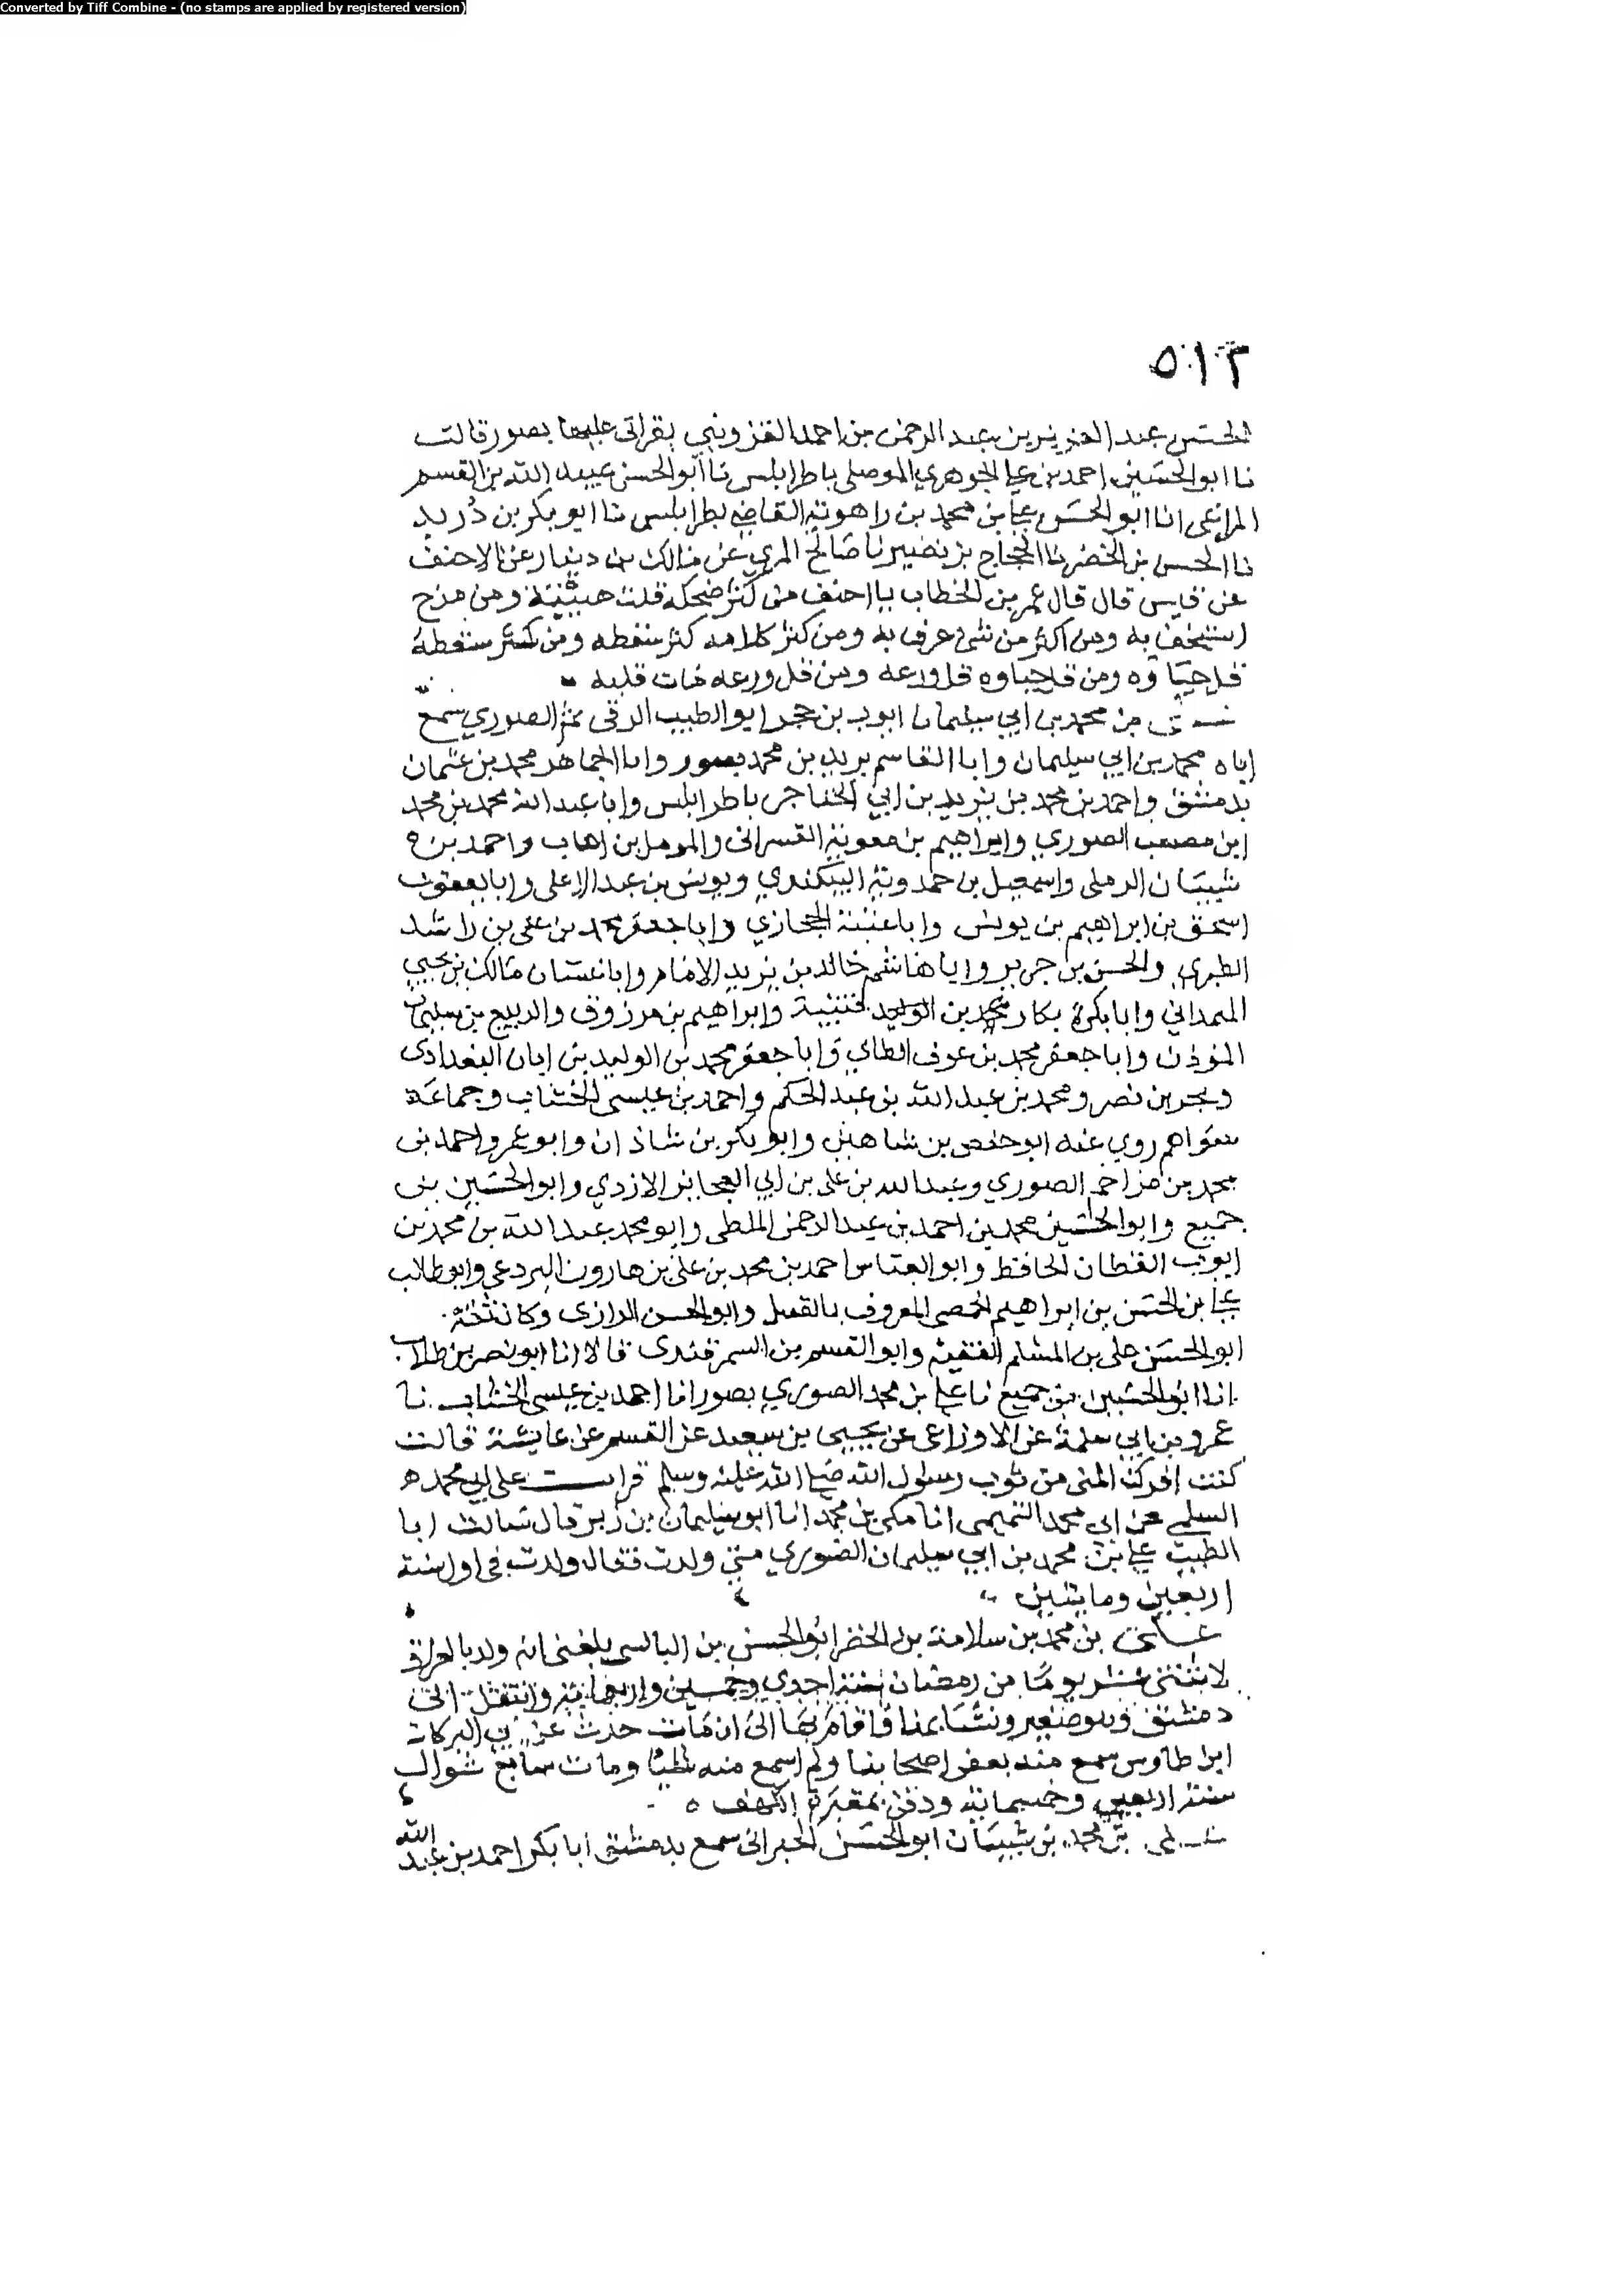 Converted by Tiff Combine - (no stamps are applied by registered version)
٥١٣
الحسن عبد العزيز بن عبد الرحمن بن احمد القزويني بقراتى عليها بصور قالت
نا ابو الحسين احمد بن علي الجوهري الموصلي باطرابلس نا ابو الحسن عبيد الله بن القسم
المراغى انا ابو الحسن علي بن محمد بن راهويه القاضي بطرابلس نا ابو بكر بن دريد
نا الحسن بن الخضر نا الحجاج بن نصير نا صالح المري عن مالك بن دينار عن الاحنف
عن قيس قال قال عمر بن الخطاب يا احنف من كثر ضحكه قلت هيبته ومن مزح
استخف به ومن اكثر من شى عرف به ومن كثر كلامه كثر سقطه ومن كثر سقطه
قل حياوه ومن قل حياوه قل ورعه ومن قل ورعه مات قلبه
بن محمد بن ابي سليمان ايوب بن حجر ابو الطيب الرقى ثم الصوري سمع
اباه محمد بن ابي سليمان وابا القاسم يزيد بن محمد بصور وابا الجماهر محمد بن عثمان
بدمشق واحمد بن محمد بن يزيد بن ابي الخناجر باطرابلس وابا عبد الله محمد بن محمد
ابن مصعب الصوري وابراهيم بن معوية القسراني والمومل بن اهاب واحمد بن
شيبان الرملى واسمعيل بن حمدويه البيكندي ويونس بن عبد الاعلى وابا يعقوب
اسحق بن ابراهيم بن يونس وابا عتبة الحجازي وابا جعفر محمد بن على بن راشد
الطبري والحسن بن جرير وابا هاشم خالد بن يزيد الامام وابا غسان مالك بن يحيى
الهمداني وابا بكرة بكار بن قتيبة وابراهيم بن مرزوق والربيع بن سليمان
الموذن وابا جعفر محمد بن عوف الطاي وابا جعفر محمد بن الوليد بن ابان البغدادى
وبحر بن نصر ومحمد بن عبد الله بن عبد الحكم واحمد بن عيسى الخشاب وجماعة
سواهم روي عنه ابو حفص بن شاهين وابو بكر بن شاذان وابو عمرو احمد بن
محمد بن مزاحم الصوري وعبد الله بن على بن ابي العجايز الازدي وابو الحسين بن
جميع وابو الحسين محمد بن احمد بن عبد الرحمن الملطى وابو محمد عبد الله بن محمد بن
ايوب القطان الحافظ وابو العباس احمد بن محمد بن على بن هارون البردعي وابو طالب
علي بن الحسن بن ابراهيم الحمصي المعروف وابو الحسن الرازى وكان ثقة
ابو الحسن على بن المسلم الفقيه وابو القسم بن السمرقندى قالا انا ابو نصر بن طلاب
انا ابو الحسين بن جميع نا علي بن محمد الصوري بصور انا احمد بن عيسى الخشاب نا
عمرو بن ابي سلمة عن الاوزاعى عن يحيى بن سعيد عن القسم عن عايشة قالت
كنت افرك المنى من ثوب رسول الله صلى الله عليه وسلم قرات على ابي محمد
السلمي عن ابي محمد التميمى انا مكي بن محمد انا ابو سليمان بن زبر قال سالت ابا
الطيب علي بن محمد بن ابي سليمان الصوري متى ولدت فقال ولدت في اول سنة
اربعين ومايتين
على بن محمد بن سلامة بن الخضر ابو الحسن بن البالسي بلغني انه ولد بالعراق
لاثنتى عشر يوما من رمضان سنة احدي وخمسين واربعماية وانتقل الى
دمشق وهو صغير ونشا بها فاقام بها الى ان مات حدث عن ابي البركات
ابن طاوس سمع منه بعض اصحابنا ولم اسمع منه شيئا ومات سابع شوال
سنة اربعين وخمسماية ودفن بمقبرة الكهف
على بن محمد بن شيبان ابو الحسن سمع بدمشق ابا بكر احمد بن عبد الله